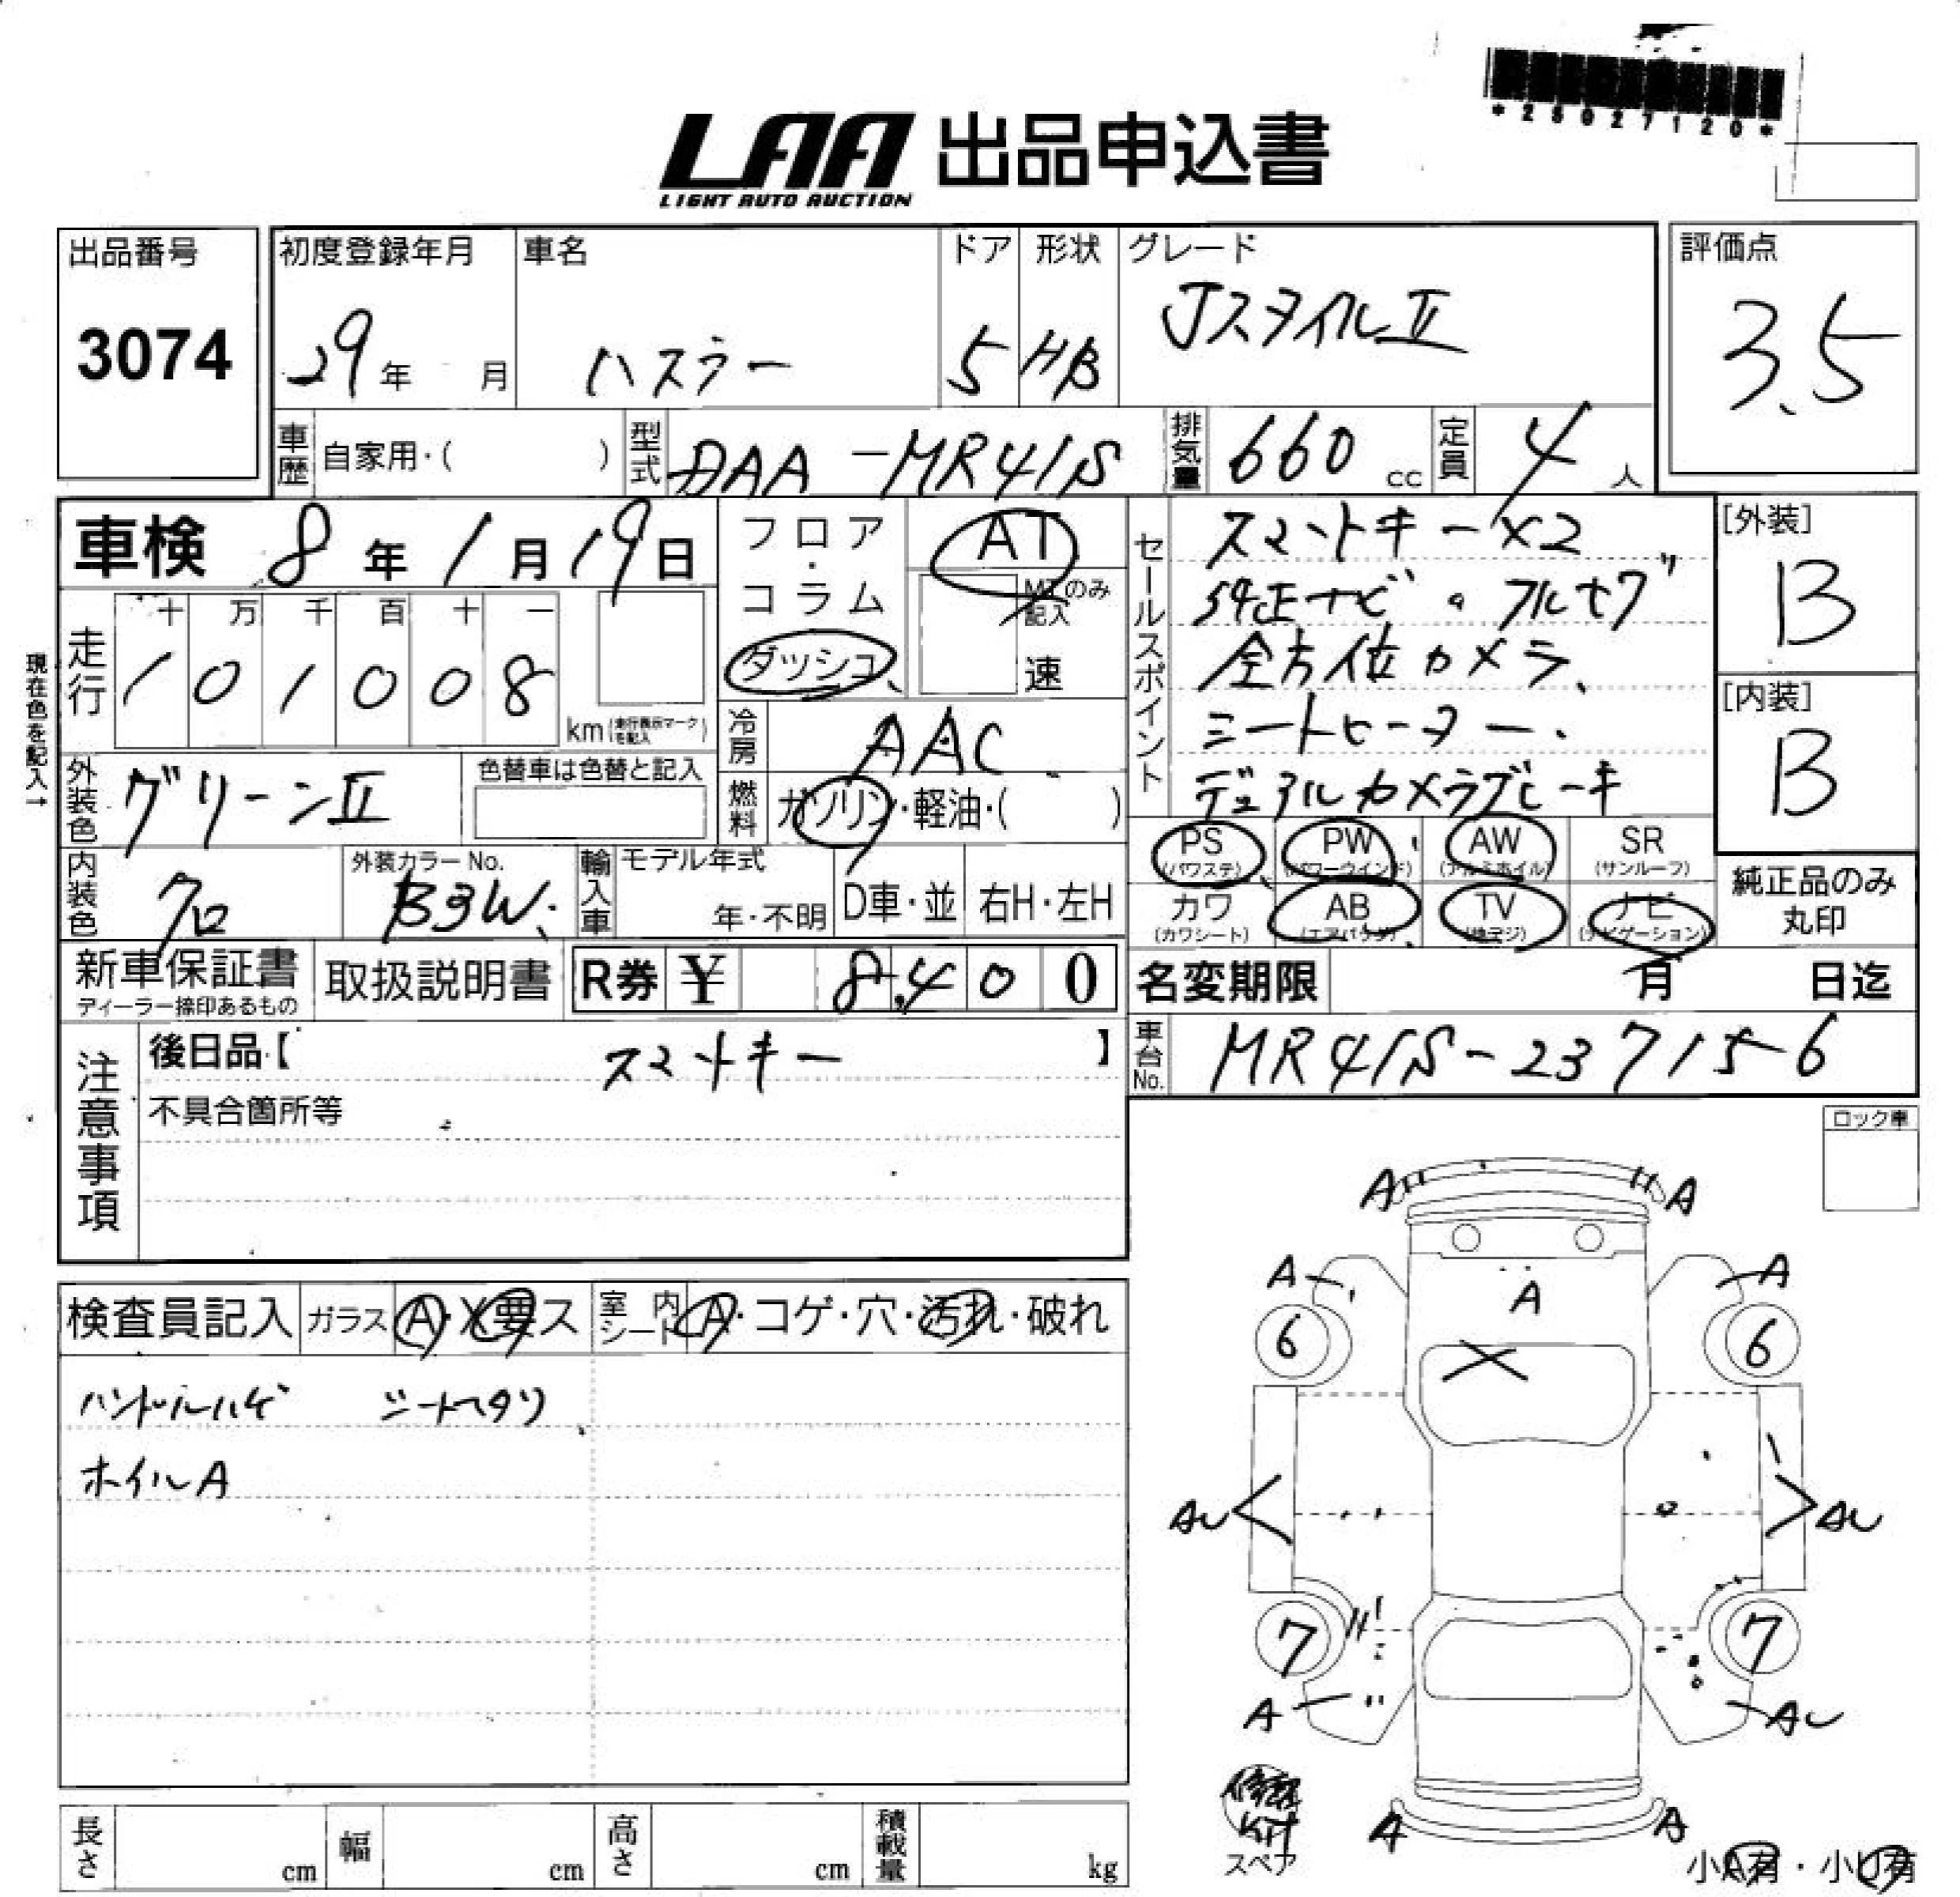 *25027120*
LAA 出品申込書
LIGHT AUTO AUCTION
出品番号
3074
初度登録年月
29年 月
車名
ハスラー
ドア
5
形状
HB
グレード
JスタイルⅡ
評価点
3.5
車歴 自家用・( )
型式 DAA-MR41S
排気量 660 cc
定員 4 人
車検 8年1月19日
フロア・コラム
ダッシュ
AT
MTのみ記入
速
現在色を記入→
走行
十 万 千 百 十 一
1 0 1 0 0 8
km(走行表示マークを記入)
冷房 AAC
燃料 ガソリン・軽油・( )
外装色 グリーンⅡ
色替車は色替と記入
内装色 クロ
外装カラーNo.
B3W
輸入車
モデル年式
年・不明
D車・並
右H・左H
セールスポイント
スマートキー×2
純正ナビ。フルセグ
全方位カメラ、
シートヒーター、
デュアルカメラブレーキ
[外装]
B
[内装]
B
PS
(パワステ)
PW
(パワーウインド)
AW
(アルミホイル)
SR
(サンルーフ)
カワ
(カワシート)
AB
(エアバック)
TV
(地デジ)
ナビ
(ナビゲーション)
純正品のみ
丸印
新車保証書
ディーラー捺印あるもの
取扱説明書
R券 ¥ 8,400
名変期限 月 日迄
車台No. MR41S-237156
注意事項
後日品【 スマートキー 】
不具合箇所等
ロック車
検査員記入
ガラス A・X要ス
室内シート A・コゲ・穴・汚れ・破れ
ハンドルハゲ シートヘタリ
ホイルA
A A
A A
A
6 6
X
AU AU
7 7
A AU
A A
修理
Kit
スペア
小A有・小U有
長さ cm
幅 cm
高さ cm
積載量 kg